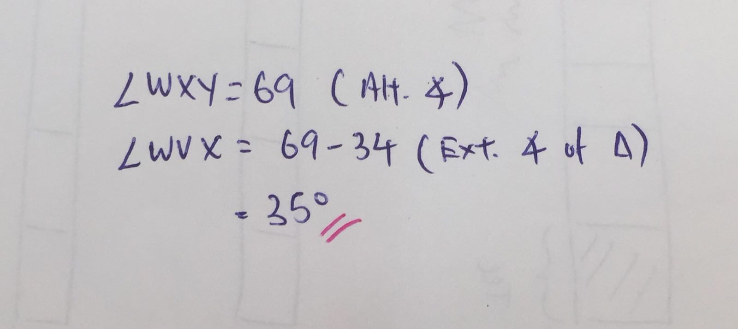 ∠WXY = 69 (Alt. ∡)
∠WVX = 69 - 34 (Ext. ∡ of Δ)
= 35°